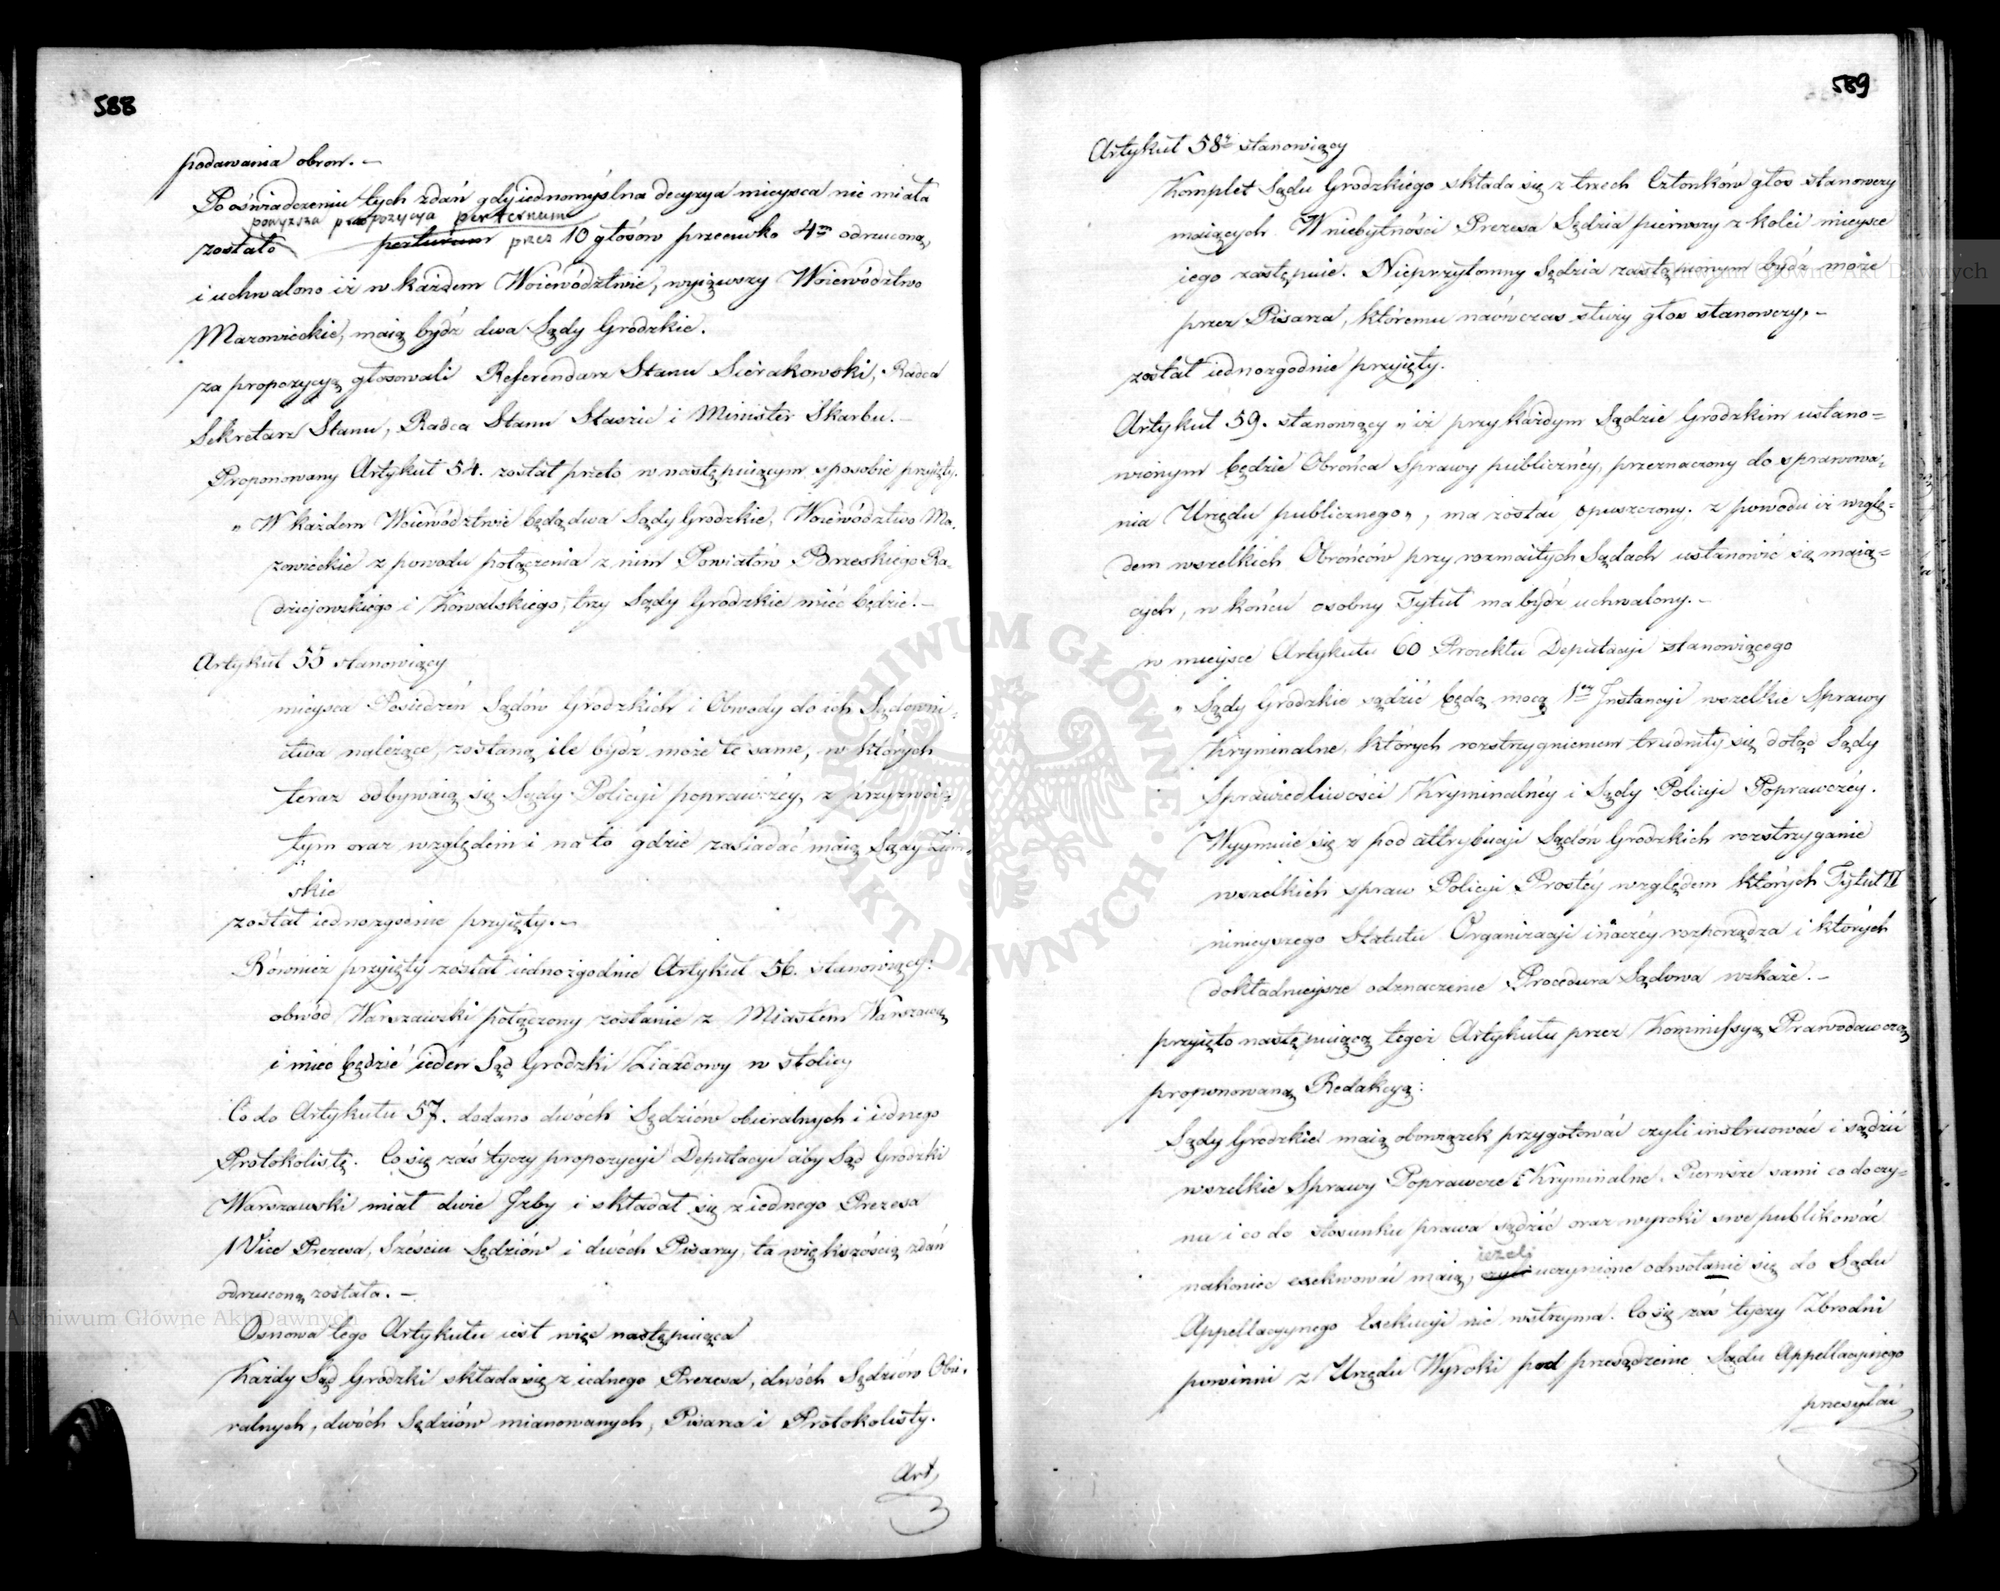 588
podawania obron. –
Po oświadczeniu tych zdań gdy iednomyślna decyzya mieysca nie miała
powyższa propozycja per ternum
zostało perturnum przez 10 głosów przeciwko 4m odrzuconą,
i uchwalono iż w każdem Woiewództwie, wyiąwszy Woiewództwo
Mazowieckie, maią bydź dwa Sądy Grodzkie.
za propozycyą głosowali Referendarz Stanu Sierakowski, Radca
Sekretarz Stanu, Radca Stanu Staszic i Minister Skarbu. –
Proponowany Artykuł 54. został przeto w następuiącym sposobie przyięty.
„ W każdem Woiewództwie będą dwa Sądy Grodzkie, Woiewództwo Ma,
zowieckie z powodu połączenia z nim Powiatów Brzeskiego Ra,
dziejowskiego i Kowalskiego, trzy Sądy Grodzkie mieć będzie. –
Artykuł 55 stanowiący
mieysca Posiedzeń Sądów Grodzkich i Obwody do ich Sądowni,
ctwa należące, zostaną ile bydź może te same, w których
teraz odbywaią się Sądy Policyi poprawczéy, z przyzwoi,
tym oraz względem i na to gdzie zasiadać maią Sądy Ziem,
skie
został iednozgodnie przyięty. –
Również przyięty został iednozgodnie Artykuł 56. stanowiący:
obwód Warszawski połączony zostanie z Miastem Warszawą
i mieć będzie ieden Sąd Grodzki Ziazdowy w stolicy
Co do Artykułu 57. dodano dwóch Sędziów obieralnych i iednego
Protokolistę. Co się zaś tyczy propozycyi Deputacyi aby Sąd Grodzki
Warszawski miał dwie Izby i składał się z iednego Prezesa
1 Vice Prezesa, Sześciu Sędziów i dwóch Pisarzy, ta większością zdań
odrzuconą została. –
Osnowa tego Artykułu iest więc następuiąca
Każdy Sąd Grodzki składa się z iednego Prezesa, dwóch Sędziów Obie,
ralnych, dwóch Sędziów mianowanych, Pisarza i Protokolisty.
Art
589
Artykuł 58y stanowiący
Komplet Sądu Grodzkiego składa się z trzech Członków głos stanowczy
maiących. W niebytności Prezesa Sędzia pierwszy z kolei mieysce
iego zastępuie. Nieprzytomny Sędzia zastąpionym bydź może
przez Pisarza, któremu naówczas służy głos stanowczy, –
został iednozgodnie przyięty.
Artykuł 59. stanowiący „ iż przy każdym Sądzie Grodzkim ustano=
wionym będzie Obrońca Sprawy publicznéy, przeznaczony do sprawowa=
nia Urzędu publicznego „, ma zostać opuszczony. z powodu iż wzglę=
dem wszelkich Obrońców przy rozmaitych Sądach ustanowić się maią=
cych, w końcu osobny Tytuł ma bydź uchwalony. –
w mieysce Artykułu 60 Proiektu Deputacyi stanowiącego
„ Sądy Grodzkie sądzić będą mocą 1ey Instancyi wszelkie Sprawy
Kryminalne, których rozstrzygnieniem trudniły się dotąd Sądy
Sprawiedliwości Kryminalnéy i Sądy Policyi Poprawczéy.
Wyymuie się z pod attrybucyi Sądów Grodzkich rozstrzyganie
wszelkich spraw Policyi Prostéy względem których Tytuł II
ninieyszego Statutu Organizacyi inaczéy rozporządza i których
dokładnieysze odznaczenie Procedura Sądowa wskaże. –
przyięto następuiącą tegoż Artykułu przez Kommissyą Prawodawczą
proponowaną Redakcyą:
Sądy Grodzkie maią obowiązek przygotować czyli instruować i sądzić
wszelkie Sprawy Poprawcze i Kryminalne. Pierwsze sami co do czy,
nu i co do stosunku prawa sądzić oraz wyroki swe publikować
ieżeli
nakoniec exekwować maią, czyli uczynione odwołanie się do Sądu
Appellacyynego Exekucyi nie wstrzyma. Co się zaś tyczy Zbrodni
powinni z Urzędu Wyroki pod przesądzenie Sądu Appellacyinego
przesyłać
Archiwum Główne Akt Dawnych
Archiwum Główne Akt Dawnych
ARCHIWUM GŁÓWNE AKT DAWNYCH